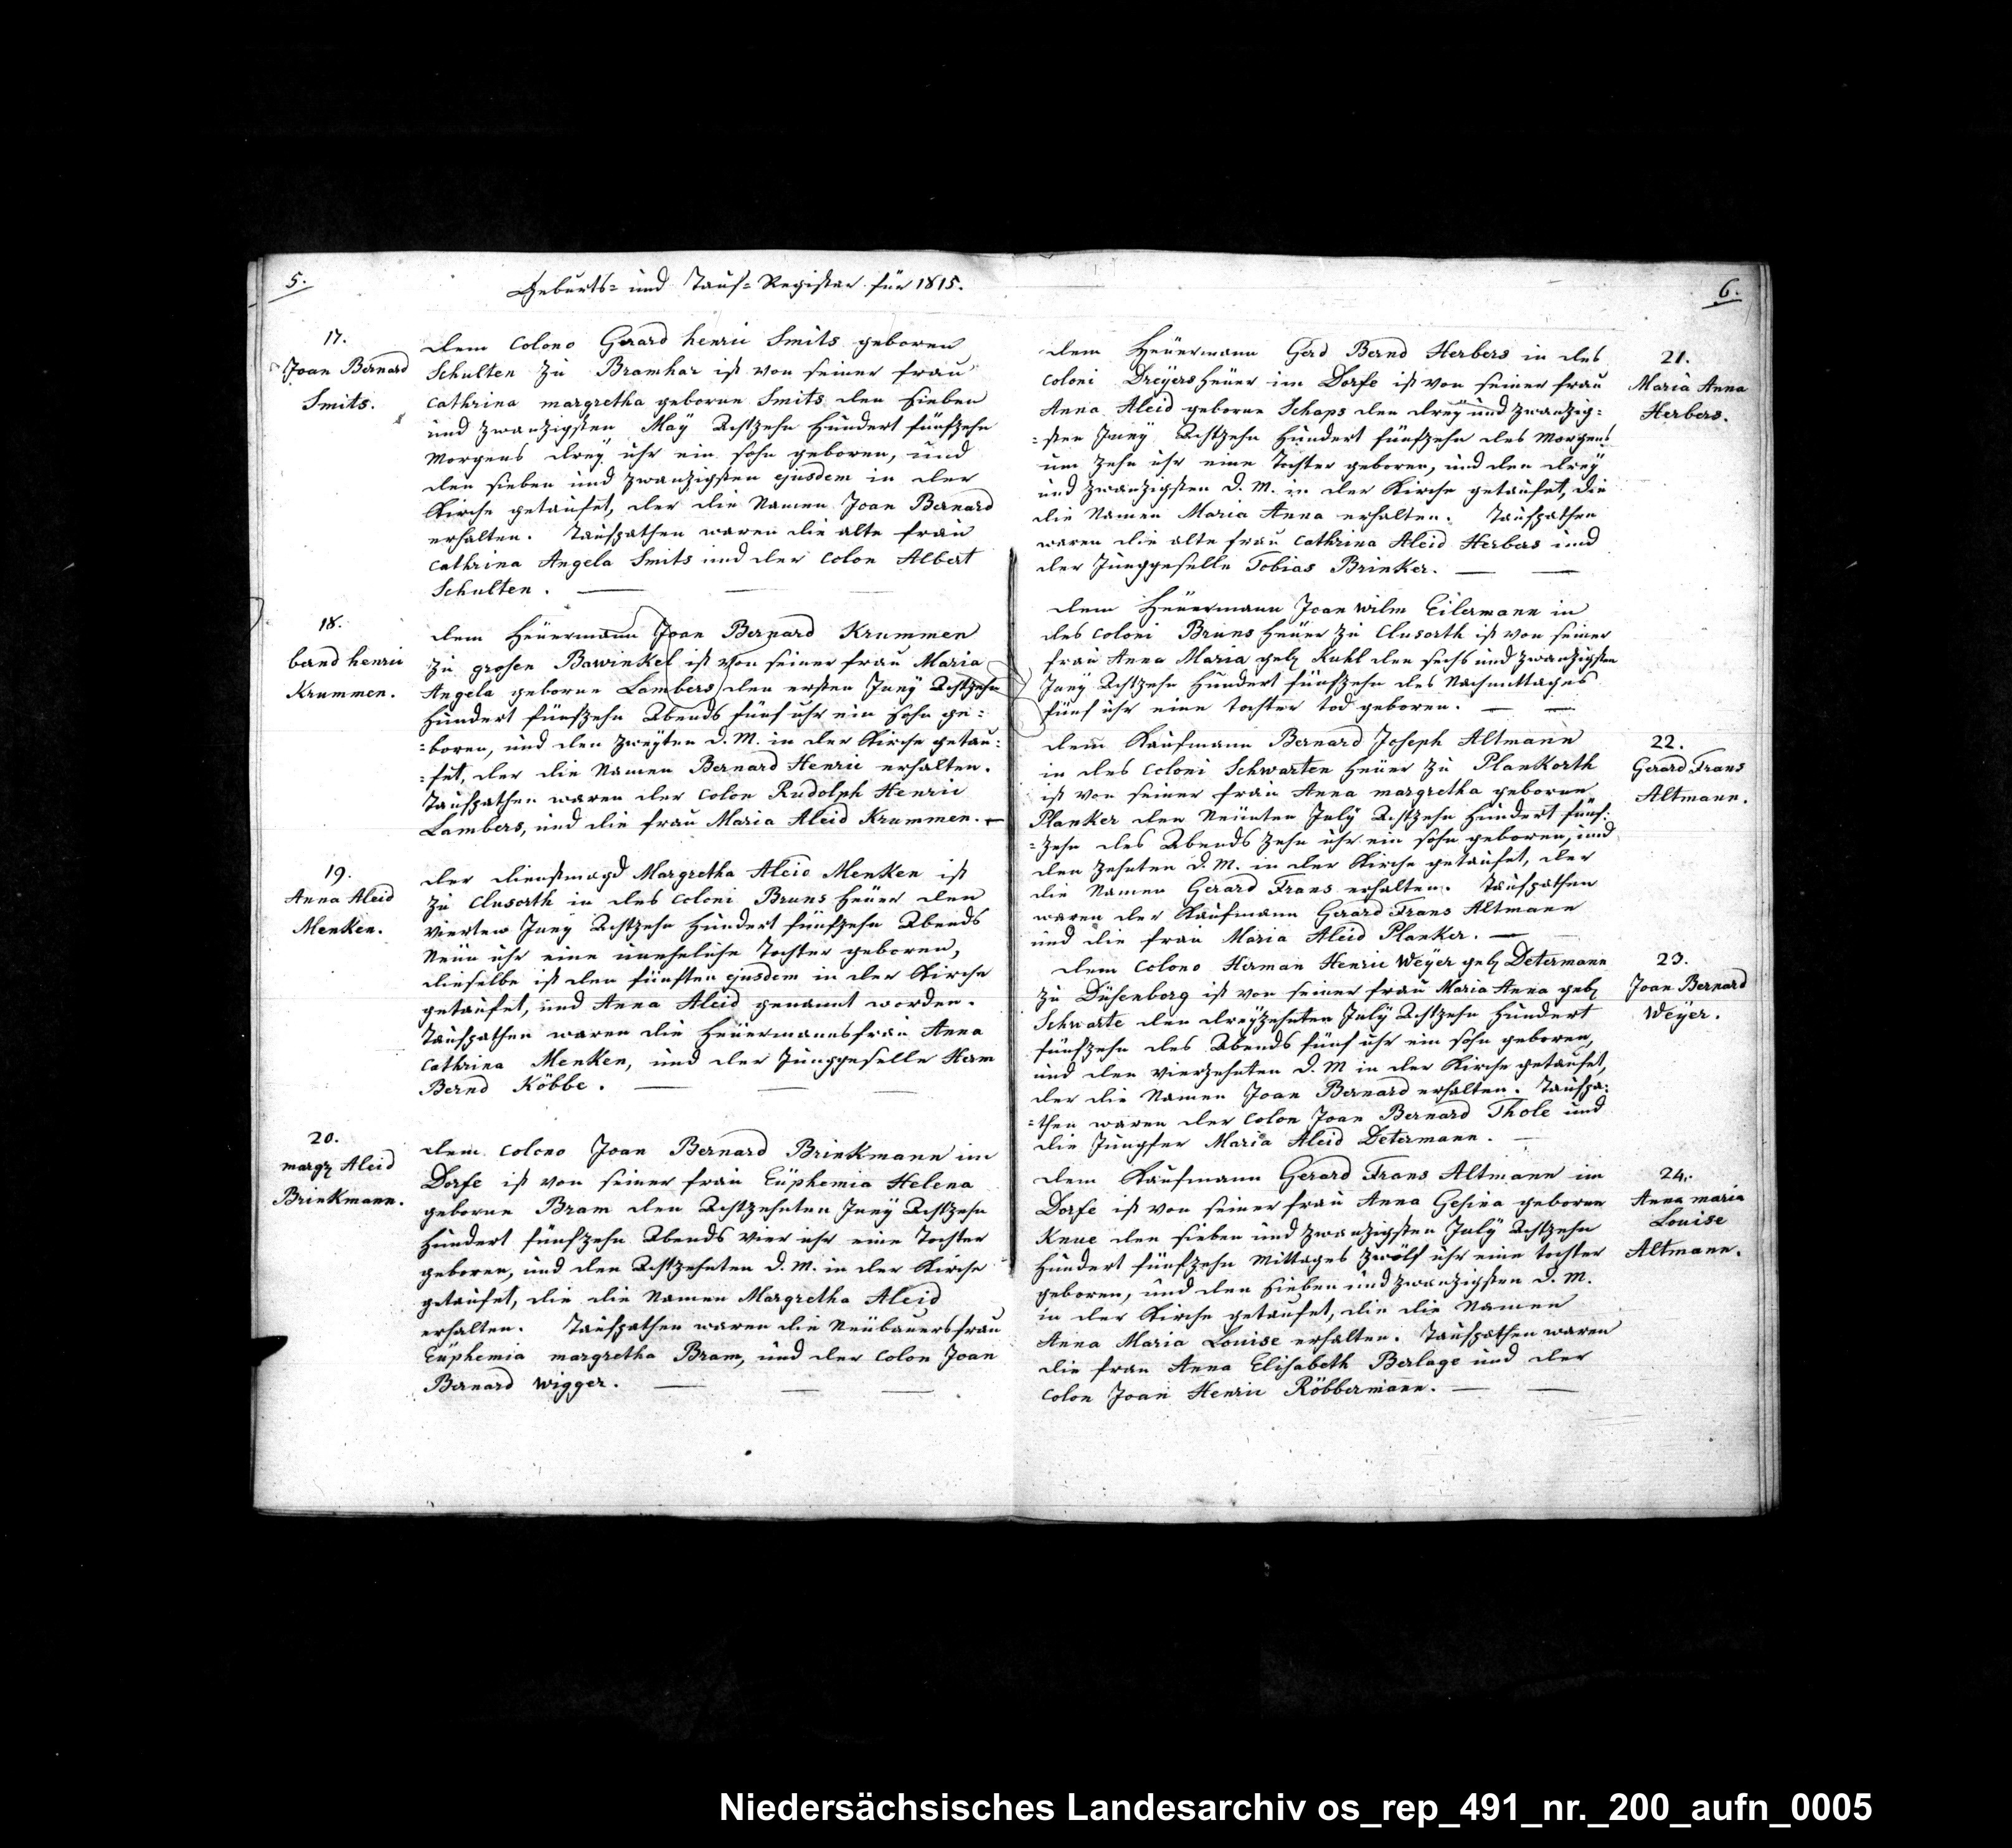 5.
Geburts- und Tauf-Register für 1815.
17.
Joan Bernard
Smits.
dem Colono Gerard henric Smits geboren
Schulten zu Bramhar ist von seiner frau
Cathrina margretha geborne Smits den sieben
und zwanzigsten Maÿ Achtzehn Hundert fünfzehn
Morgens dreÿ uhr ein sohn geboren, und
den sieben und zwanzigsten ejusdem in der
Kirche getaufet, der die Namen Joan Bernard
erhalten. Taufpathen waren die alte frau
Cathrina Angela Smits und der Colon Albert
Schulten.
18.
bernd henric
Krummen.
dem Heuermann Joan Bernard Krummen
zu grosen Bawinkel ist von seiner frau Maria
Angela geborne Lambers den ersten Junÿ Achtzehn
Hundert fünfzehn Abends fünf uhr ein sohn ge=
=boren, und den zweÿten d. M. in der Kirche getau=
=fet, der die Namen Bernard Henric erhalten.
Taufpathen waren der Colon Rudolph Henric
Lambers, und die frau Maria Aleid Krummen.
19.
Anna Aleid
Menken.
der dienstmagd Margretha Aleid Menken ist
zu Clusorth in des Coloni Bruns Heuer den
vierten Junÿ Achtzehn Hundert fünfzehn Abends
Neun uhr eine uneheliche Tochter geboren,
dieselbe ist den fünften ejusdem in der Kirche
getaufet, und Anna Aleid genannt worden.
Taufpathen waren die Heuermannsfrau Anna
Cathrina Menken, und der Junggeselle Herm
Bernd Köbbe.
20.
margr Aleid
Brinkmann.
dem Colono Joan Bernard Brinkmann im
Dorfe ist von seiner frau Euphemia Helena
geborne Bram den Achtzehnten Junÿ Achtzehn
Hundert fünfzehn Abends vier uhr eine Tochter
geboren, und den Achtzehnten d. M. in der Kirche
getaufet, die die Namen Margretha Aleid
erhalten. Taufpathen waren die Neubauersfrau
Euphemia margretha Bram, und der Colon Joan
Bernard Wigger.
6.
dem Heuermann Gerd Bernd Herbers in des
Coloni Dreÿers Heuer im Dorfe ist von seiner frau
Anna Aleid geborne Schaps den dreÿ und zwanzig=
=sten Junÿ Achtzehn Hundert fünfzehn des Morgens
um zehn uhr eine Tochter geboren, und den dreÿ
und zwanzigsten d. M. in der Kirche getaufet, die
die Namen Maria Anna erhalten. Taufpathen
waren die alte frau Cathrina Aleid Herbers und
der Junggeselle Tobias Brinker.
21.
Maria Anna
Herbers.
dem Heuermann Joan Wilm Eilermann in
des Coloni Bruns Heuer zu Clusorth ist von seiner
frau Anna Maria geb Kuhl den sechs und zwanzigsten
Junÿ Achtzehn Hundert fünfzehn des Nachmittages
fünf uhr eine tochter tod geboren.
dem Kaufmann Bernard Joseph Altmann
in des Coloni Schwarten Heuer zu Plankorth
ist von seiner frau Anna margretha geborne
Planker den Neunten Julÿ Achtzehn Hundert fünf=
=zehn des Abends zehn uhr ein sohn geboren, und
den zehnten d. M. in der Kirche getaufet, der
die Namen Gerard Frans erhalten. Taufpathen
waren der Kaufmann Gerard Frans Altmann
und die frau Maria Aleid Planker.
22.
Gerard Frans
Altmann.
dem Colono Herman Henric Weÿer geb Determann
zu Düsenborg ist von seiner frau Maria Anna geb
Schwarte den dreÿzehnten Julÿ Achtzehn Hundert
fünfzehn des Abends fünf uhr ein sohn geboren,
und den vierzehnten d. M in der Kirche getaufet,
der die Namen Joan Bernard erhalten. Taufpa=
=then waren der Colon Joan Bernard Thole und
die Jungfer Maria Aleid Determann.
23.
Joan Bernard
Weÿer.
dem Kaufmann Gerard Frans Altmann im
Dorfe ist von seiner frau Anna Gesina geborne
Knue den sieben und zwanzigsten Julÿ Achtzehn
Hundert fünfzehn Mittages zwölf uhr eine tochter
geboren, und den sieben und zwanzigsten d. M.
in der Kirche getaufet, die die Namen
Anna Maria Louise erhalten. Taufpathen waren
die frau Anna Elisabeth Berlage und der
Colon Joan Henric Röbbermann.
24.
Anna maria
Louise
Altmann.
Niedersächsisches Landesarchiv os_rep_491_nr._200_aufn_0005